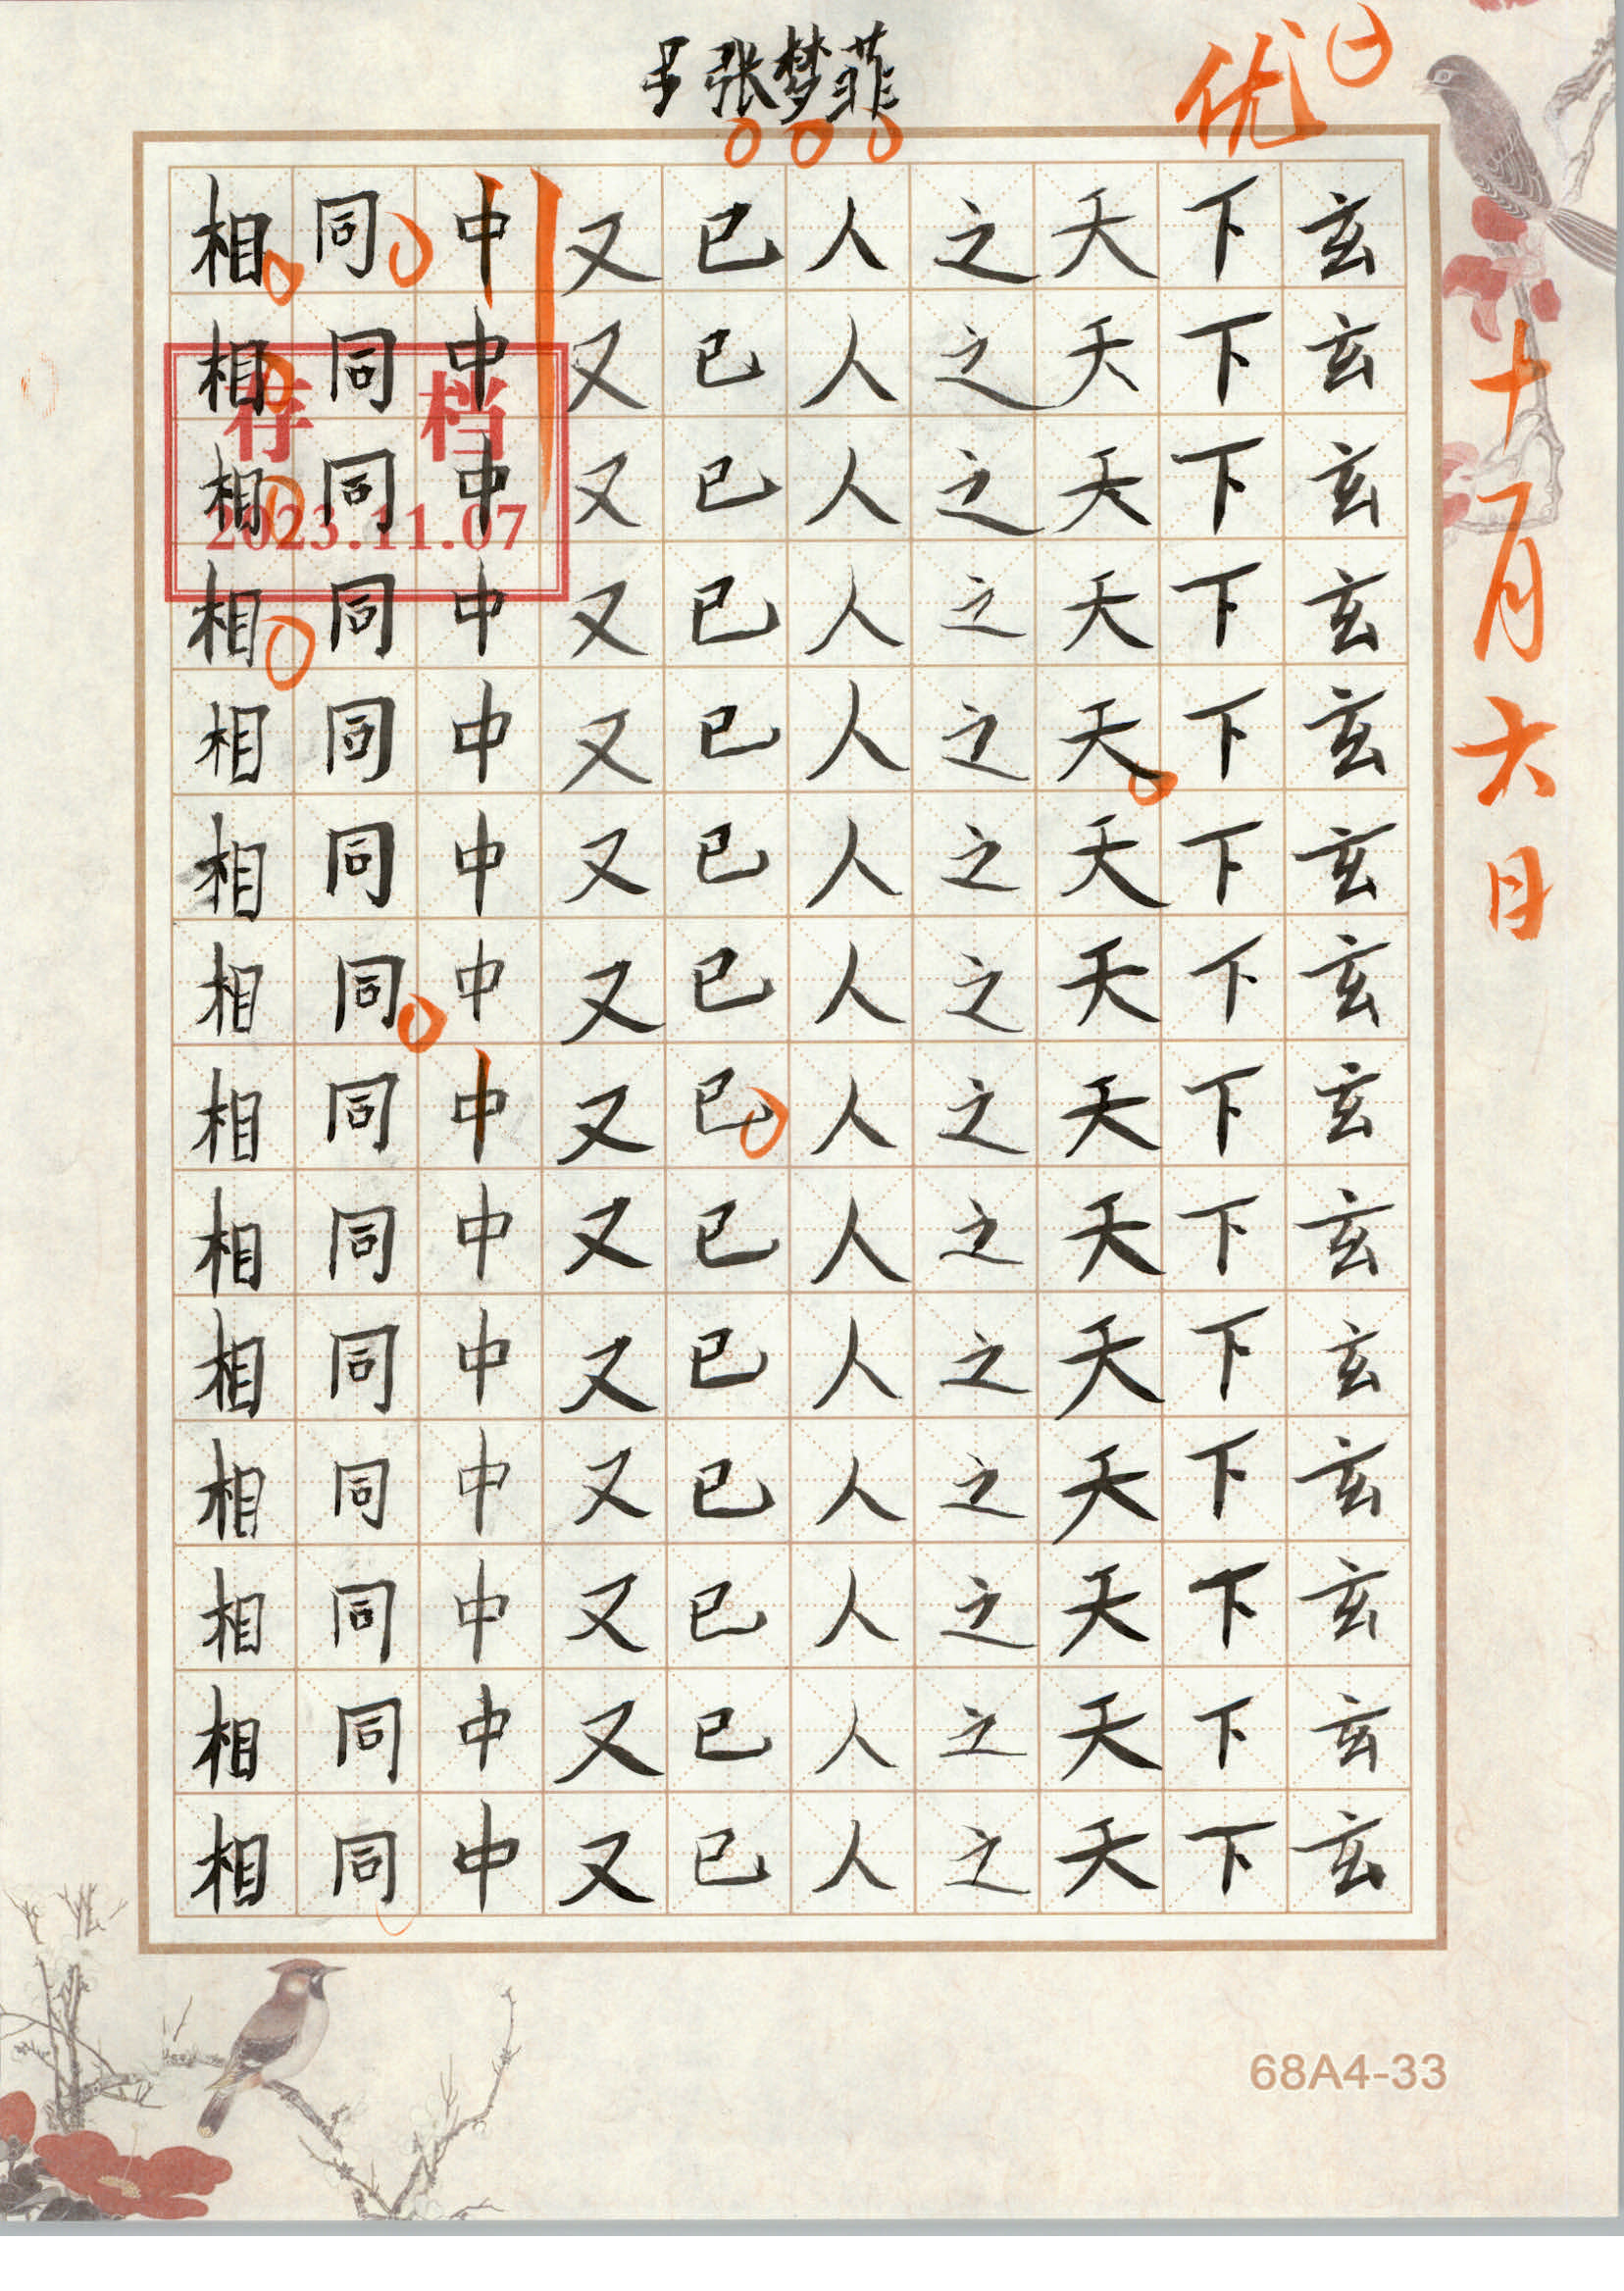 张梦菲
优
十一月六日
玄玄玄玄玄玄玄玄玄玄玄玄玄玄
下下下下下下下下下下下下下下
天天天天天天天天天天天天天天
之之之之之之之之之之之之之之
人人人人人人人人人人人人人人
已已已已已已已已已已已已已已
又又又又又又又又又又又又又又
中中中中中中中中中中中中中中
同同同同同同同同同同同同同同
相相相相相相相相相相相相相相
存档
2023.11.07
68A4-33